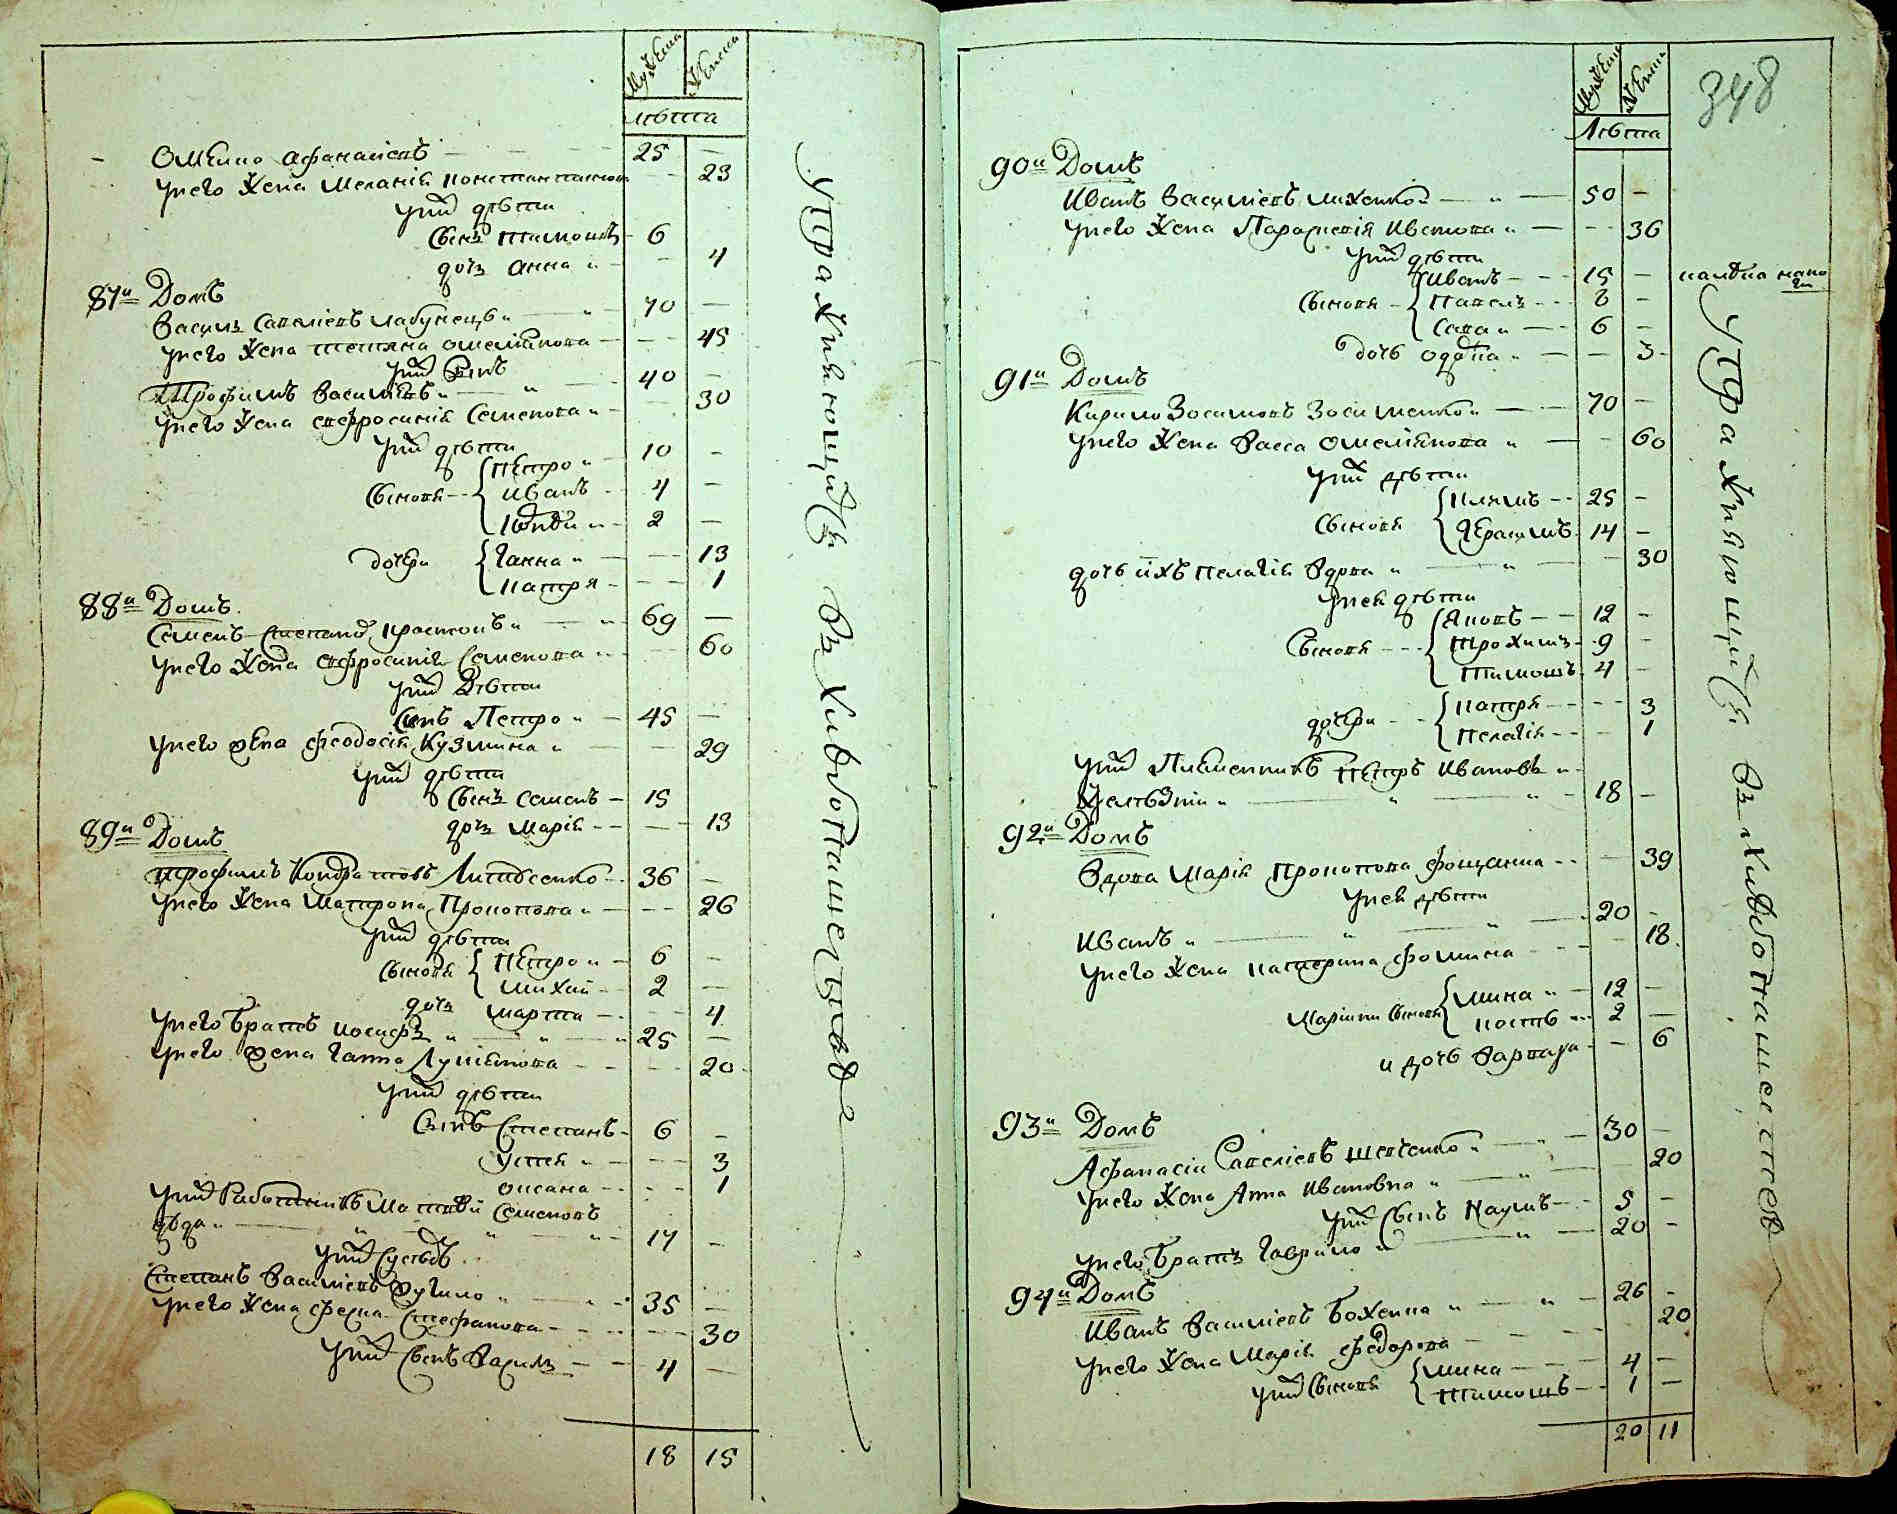 Мужеска
Женска
Лѣта
Омелко Афанасіевъ 25
Унего жена Меланія Константинова 23
Уних дѣти
Сынъ Тимошъ 6
дочь Анна 4
87й Домъ
Василь Савеліевъ Лабунецъ 70
Унего жена Тетяна Омеліянова 45
Уних Сынъ
Трофимъ Василіевъ 40
Унего жена Евфросинія Семенова 30
Уних дѣти
Сыновя Петро 10
Иванъ 4
Кондра 2
дочери Ганна 13
Катря 1
88й Домъ
Семенъ Степановъ 69
Унего жена Евфросинія Семенова 60
Уних Дѣти
Сынъ Петро 45
Унего жена Феодосія Кузмина 29
Уних дѣти
Сынъ Семенъ 15
дочь Марія 13
89й Домъ
Трофимъ Кондратовъ 36
Унего жена Матрона Прокопова 26
Уних дѣти
Сыновя Петро 6
Михай 2
дочь Марта 4
Унего братъ Иосифъ 25
Унего жена Ганна Лукіянова 20
Уних дѣти
Сынъ Степанъ 6
Устя 3
Оксана 1
Уних Работникъ Матвей Семеновъ
17
Уних Сусѣдъ
Степанъ Василіевъ 35
Унего жена Фекла Стефанова 30
Уних Сынъ Василь 4
18 15
Упражняющийся въ хлѣбопашествѣ
348
Мужеска
Женска
Лѣта
90й Домъ
Иванъ Василіевъ Михенко 50
Унего жена Параскевія Иванова 36
Уних дѣти
Сыновя Иванъ 15
Павелъ 8
Сава 6
дочь 3
91й Домъ
Кирило Зосимовъ Зосименко 70
Унего жена Васса Омеліянова 60
Уних дѣти
Сыновя Климъ 25
Герасимъ 14
дочь ихъ Пелагія Вдова 30
Унея дѣти
Сыновя Яковъ 12
Трохимъ 9
Тимошъ 4
дочери Катря 3
Пелагія 1
Уних Племенникъ Петръ Ивановъ
18
92й Домъ
Вдова Марія Прокопова 39
Унея дѣти
Иванъ 20
Унего жена Катерина Фомина 18
Маріини Сыновя Мина 12
Костъ 2
и дочь Варвара 6
93й Домъ
Афанасій Савеліевъ Шевченко 30
Унего жена Анна Ивановна 20
Уних Сынъ Наумъ 5
Унего братъ Гаврило 20
94й Домъ
Иванъ Василіевъ Боженко 26
Унего жена Марія Федорова 20
Уних Сыновя Мина 4
Тимошъ 1
20 11
Упражняющийся въ хлѣбопашествѣ